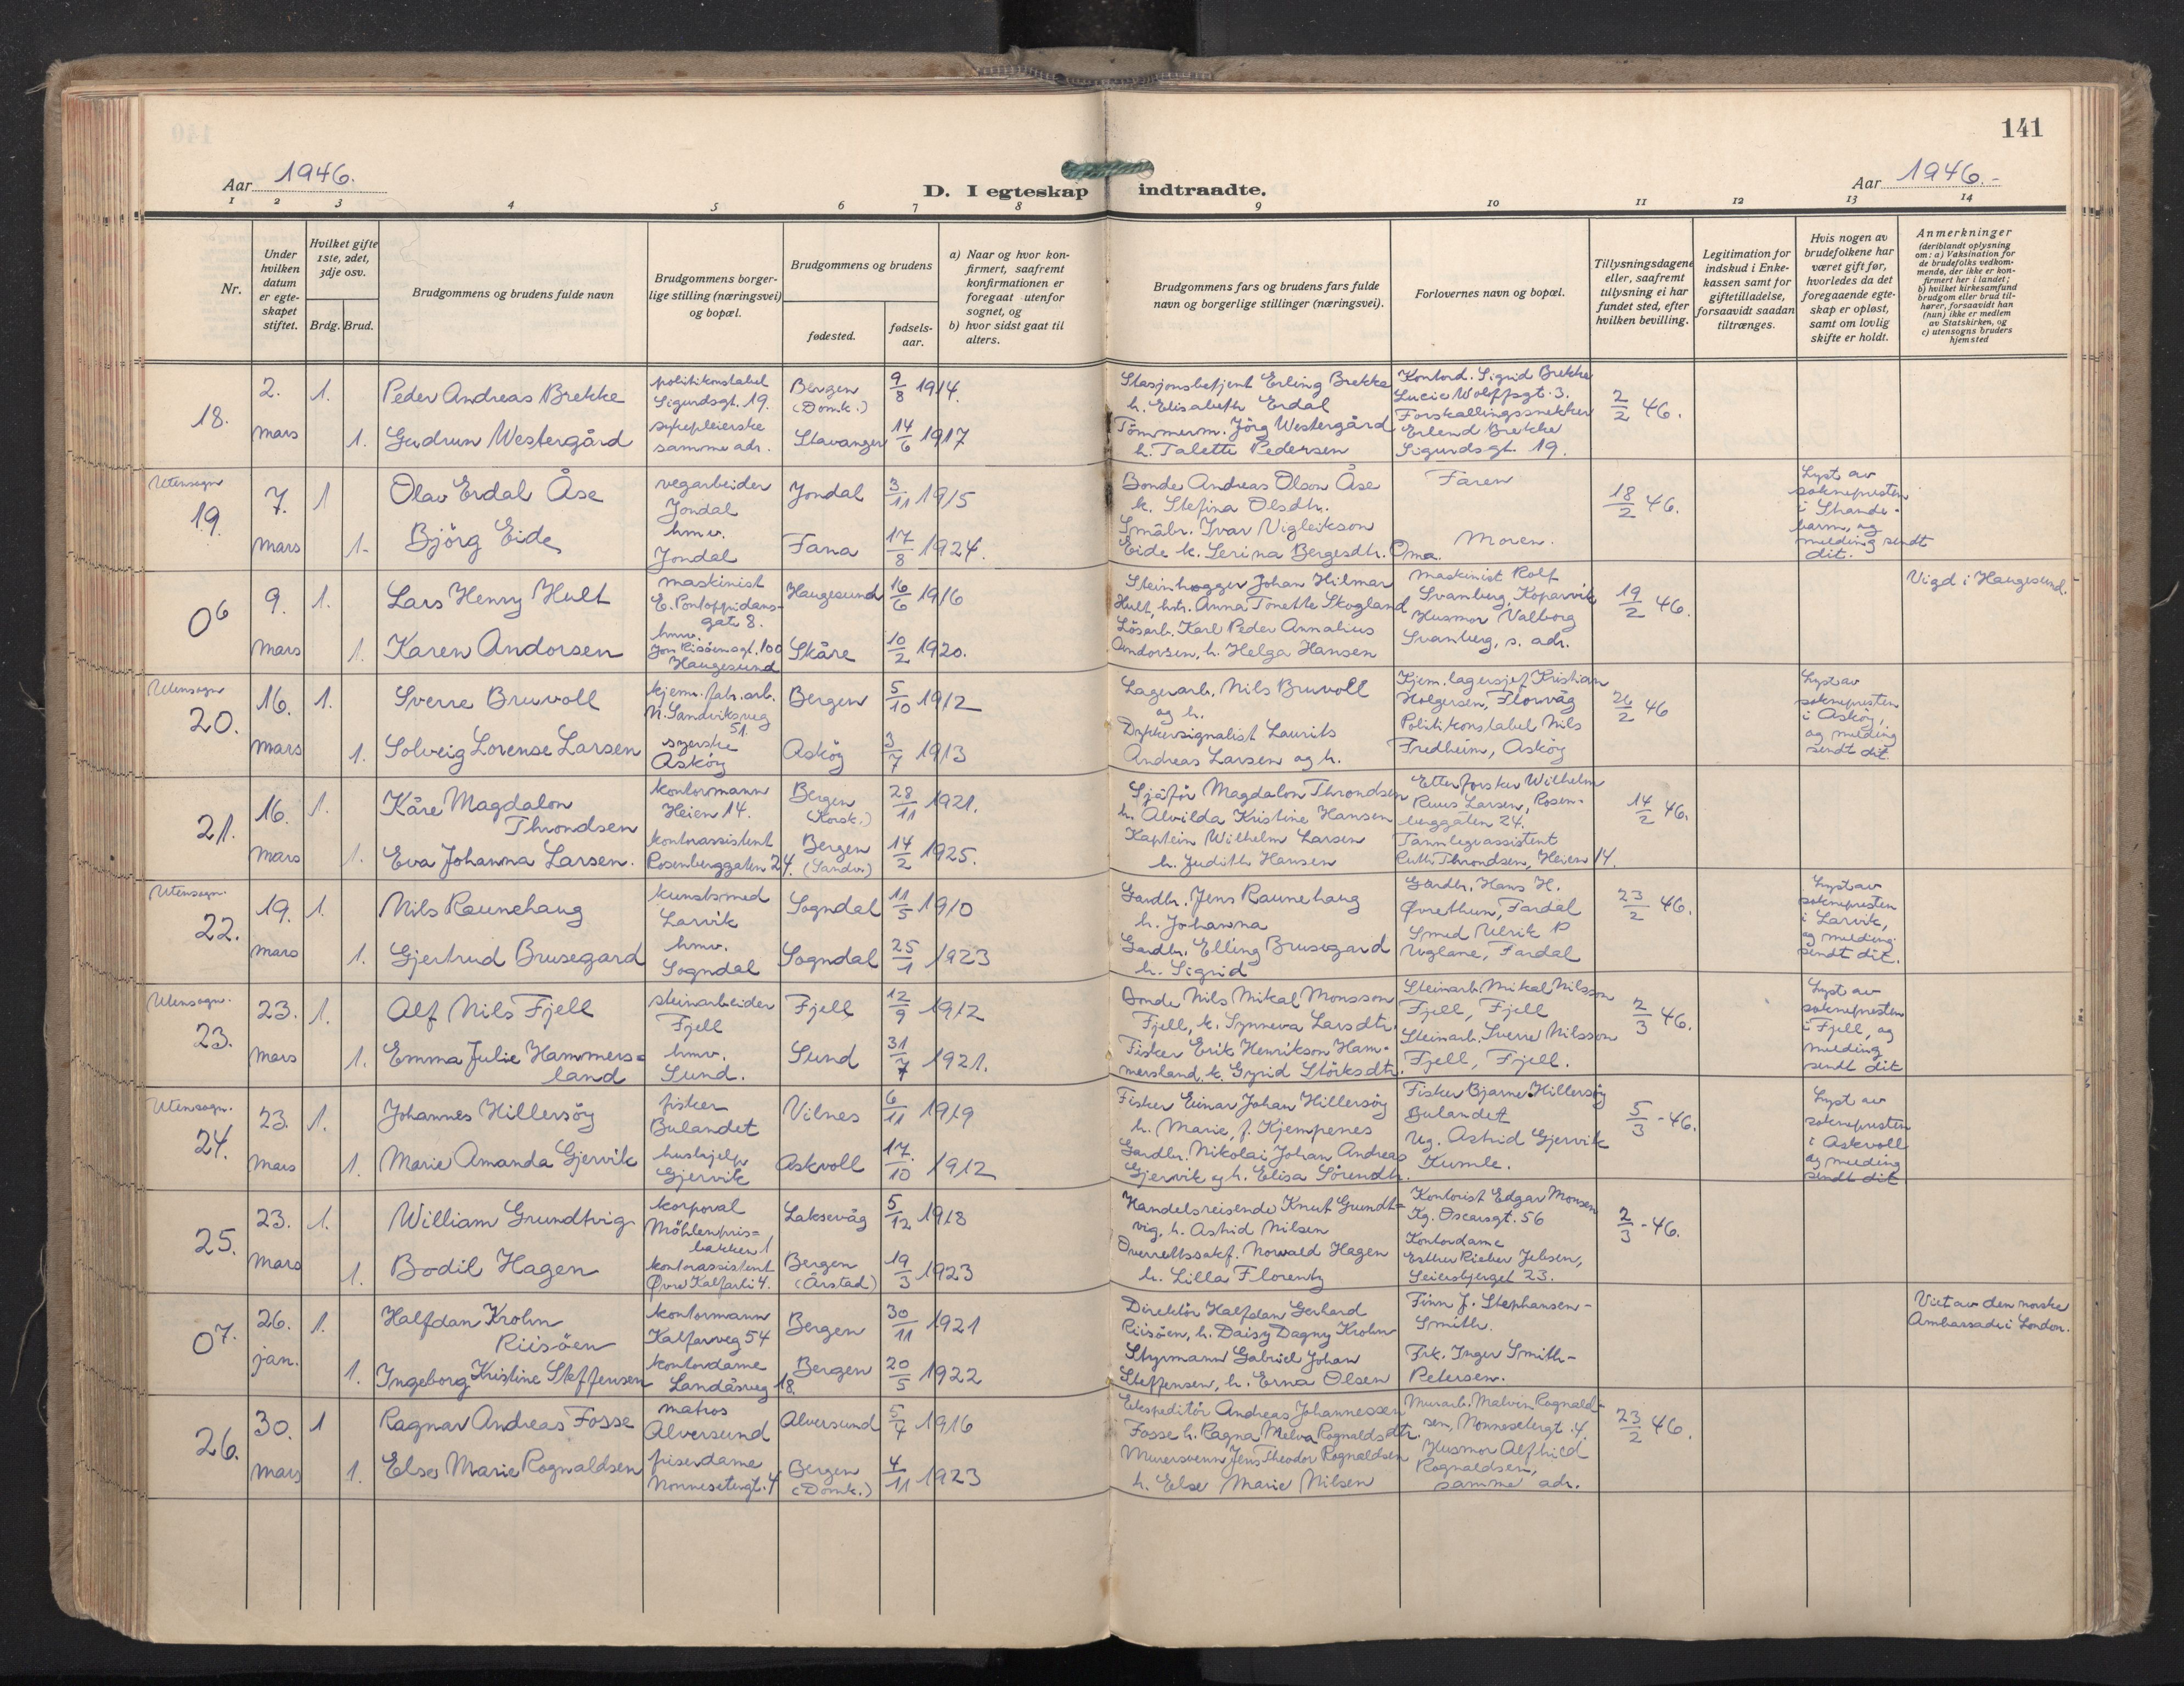 141
Aar 1946.
D. I egteskap indtraadte.
Aar 1946.-
1 2 3 4 5 6 7 8 9 10 11 12 13 14
Nr.
Under hvilken datum er egteskapet stiftet.
Hvilket gifte 1ste, 2det, 3dje osv.
Brdg. Brud.
Brudgommens og brudens fulde navn
Brudgommens borgerlige stilling (næringsvei) og bopæl.
Brudgommens og brudens
fødested.
fødselsaar.
a) Naar og hvor konfirmert, saafremt konfirmationen er foregaat utenfor sognet, og
b) hvor sidst gaat til alters.
Brudgommens fars og brudens fars fulde navn og borgerlige stillinger (næringsvei).
Forlovernes navn og bopæl.
Tillysningsdagene eller, saafremt tillysning ei har fundet sted, efter hvilken bevilling.
Legitimation for indskud i Enkekassen samt for giftetilladelse, forsaavidt saadan tiltrænges.
Hvis nogen av brudefolkene har været gift før, hvorledes da det foregaaende egteskap er opløst, samt om lovlig skifte er holdt.
Anmerkninger
(deriblandt oplysning om: a) Vaksination for de brudefolks vedkommende, der ikke er konfirmert her i landet;
b) hvilket kirkesamfund brudgom eller brud tilhører, forsaavidt han (hun) ikke er medlem av Statskirken, og
c) utensogns bruders hjemsted
18. 2. mars 1. Peder Andreas Brekke politikonstabel Sigurdsgt. 19. Bergen (Domk.) 9/8 1914.
Stasjonsbetjent Erling Brekke h. Elisabeth Erdal
Kontord. Sigrid Brekke Lucie Wolffsgt. 3.
2/2 46.
1. Gudrun Westergård sykepleierske samme adr. Stavanger 14/6 1917
Tömmerm. Jörg Westergård h. Talette Pedersen
Forskallingssnekker Erlend Brekke Sigurdsgt. 19.
Utensogn 19. 7. mars 1 Olav Erdal Åse vegarbeider Jondal Jondal 3/11 1915
Bonde Andreas Olson Åse k. Stefina Olsdtr.
Faren
18/2 46.
Lyst av sokneprsten i Strandebarm, og melding sendt dit.
1. Björg Eide hmv. Jondal Fana 17/8 1924.
Småbr. Ivar Vigleikson Eide k. Serina Bergesdtr. Oma.
Moren.
06 9. mars 1. Lars Henry Hult maskinist E. Pontoppidansgate 8. Haugesund 16/6 1916
Steinhogger Johan Hilmar Hult, h. Anna Tonette Skogland
Maskinist Rolf Svanberg, Kopervik
19/2 46.
Vigd i Haugesund.
1. Karen Andorsen hmv. Haugesund Skåre 10/2 1920.
Lösarb. Karl Peder Annanius Andorsen, h. Helga Hansen
Husmor Valborg Svanberg, s. adr.
Utensogn 20. 16. mars 1. Sverre Bruvoll kjem. fabr. arb. N. Sandviksveg 51. Bergen 5/10 1912
Lagerarb. Nils Bruvoll og h.
Kjem. lagersjef Kristian Holgersen, Florvåg
26/2 46
Lyst av soknepresten i Asköy, og melding sendt dit.
1. Solveig Lovense Larsen syerske Asköy Asköy 3/7 1913
Dykkersignalist Laurits Andreas Larsen og h.
Politikonstabel Nils Fredheim, Asköy
21. 16. mars 1. Kåre Magdalon Throndsen kontormann Heien 14. Bergen (Korsk.) 28/11 1921.
Sjåför Magdalon Throndsen h. Alvilda Kristine Hansen
Etterforsker Wilhelm Ruus Larsen, Rosenberggaten 24.
14/2 46.
1. Eva Johanna Larsen. kontorassistent Rosenberggaten 24. Bergen (Sandv.) 14/2 1925.
Kaptein Wilhelm Larsen h. Judith Hansen
Tannlegeassistent Ruth Throndsen, Heien 14.
Utensogn. 22. 19. mars 1. Nils Raunehaug kunstsmed Larvik Sogndal 11/5 1910
Gardbr. Jens Raunehaug h. Johanna
Gardbr. Hans H. Øvrethun, Fardal
23/2 46.
Lyst av soknepresten i Larvik, og melding sendt dit.
1. Gjertrud Brusegard hmv. Sogndal Sogndal 25/1 1923
Gardbr. Elling Brusegard h. Sigrid
Smed Ulrik P Uglane, Fardal
Utensogn. 23. 23. mars 1. Alf Nils Fjell steinarbeider Fjell Fjell 12/9 1912
Bonde Nils Mikal Monsson Fjell, k. Synneva Larsdtr.
Steinarb. Mikal Nilsson Fjell, Fjell
2/3 46.
Lyst av soknepresten i Fjell, og melding sendt dit
1. Emma Julie Hammersland hmv. Sund. Sund 31/7 1921.
Fisker Erik Henrikson Hammersland, k. Gyrid Störksdtr.
Steinarb. Sverre Nilsson Fjell, Fjell.
Utensogn. 24. 23. mars 1. Johannes Hillersöy fisker Bulandet Vilnes 6/11 1919
Fisker Einar Johan Hillersöy h. Marie, f. Kjempenes
Fisker Bjarne Hillersöy Bulandet
5/3 - 46.
Lyst av soknepresten i Askvoll og melding sendt dit
1. Marie Amanda Gjervik hushjelp Gjervik Askvoll 17./10 1912
Gardbr. Nikolai Johan Andreas Gjervik og h. Elisa Sörendtr.
Ug. Astrid Gjervik Kumle.
25. 23. mars 1. William Grundtvig korporal Möhlenprisbakken 1 Laksevåg 5/12 1918
Handelsreisende Knut Grundtvig, h. Astrid Nilsen
Kontorist Edgar Monsen Kg. Oscarsgt. 56
2/3 - 46.
1. Bodil Hagen kontorassistent Øvre Kalfarli 4. Bergen (Årstad) 19/3 1923
Overrettssakf. Norvald Hagen h. Lilla Florentz
Kontordame Esther Rieber Jebsen, Seiersbjerget 23.
07. 26. jan. 1. Halfdan Krohn Riisöen kontormann Kalfarveg 54 Bergen 30/11 1921
Direktör Halfdan Gerhard Riisöen, h. Daisy Dagny Krohn
Finn J. Stephansen-Smith.
Viet av den norske Ambassade i London.
1. Ingeborg Kristine Steffensen kontordame Landåsveg 18. Bergen 20/5 1922
Styrmann Gabriel Johan Steffensen, h. Erna Olsen
Frk. Inger Smith-Petersen.
26. 30. mars 1 Ragnar Andreas Fosse matros Alversund Alversund 5/4 1916
Ekspeditör Andreas Johannessen Fosse h. Ragna Melva Rognaldsdtr.
Murarb. Malvin Rognaldsen, Nonnesetergt. 4.
23/2 46.
1. Else Marie Rognaldsen friserdame Nonnesetergt. 4 Bergen (Domk.) 4/11 1923
Murersvenn Jens Theodor Rognaldsen h. Else Marie Nilsen
Husmor Alfhild Rognaldsen, samme adr.